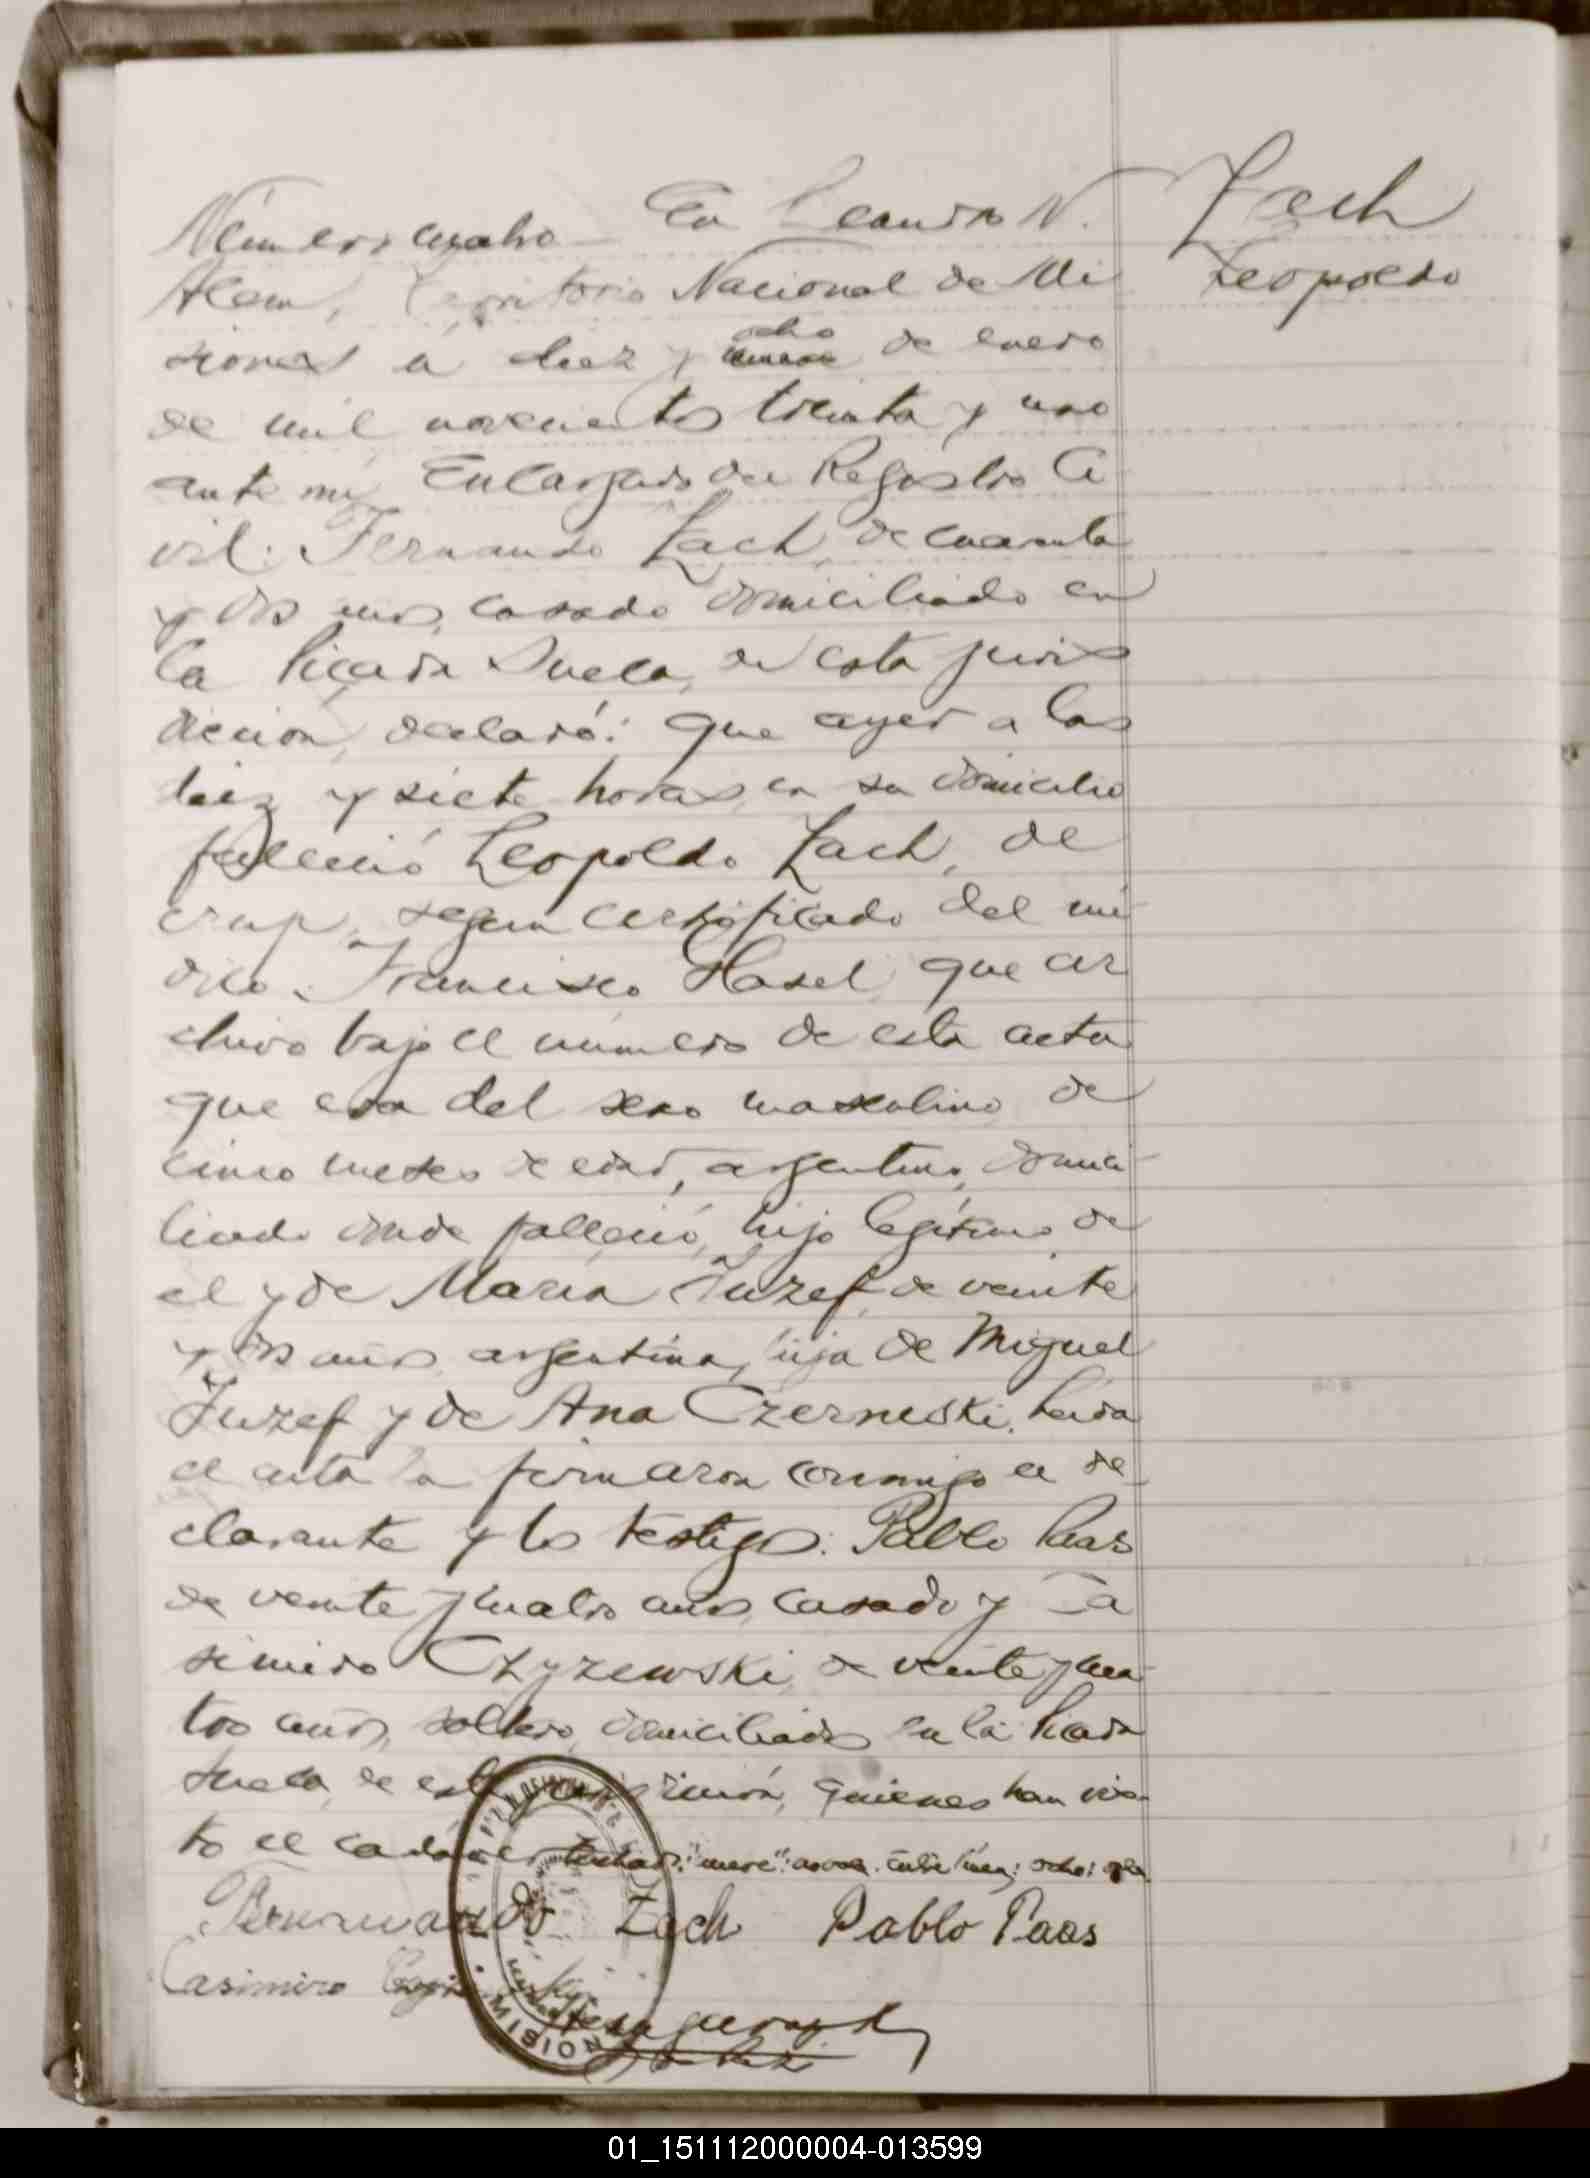 Número cuatro En Leandro N.
Zach
Leopoldo
Alem, Territorio Nacional de Mi
siones a diez y ocho de enero
de mil novecientos treinta y uno
ante mí, Encargado del Registro Ci
vil: Fernando Zach, de cuarenta
y dos años, casado domiciliado en
la Picada Sueca, de esta juris
dicción, declaró: que ayer a las
diez y siete horas, en su domicilio
falleció Leopoldo Zach, de
crup, según certificado del mé
dico Francisco Hasel, que ar
chivo bajo el número de esta acta
que era del sexo masculino, de
cinco meses de edad, argentino, domici
liado donde falleció, hijo legítimo de
el y de María Juzef, de veinte
y dos años, argentina, hija de Miguel
Juzef y de Ana Czerneski. Leída
el acta la firmaron conmigo el de
clarante y los testigos: Pablo Paas
de veinte y cuatro años, casado y Ca
simiro Czyzewski, de veinte y cua
tro años, soltero, domiciliados en la Picada
Sueca, de esta jurisdicción, quienes han vis
to el cadáver. Entre línea: ocho: vale
Fernando Zach Pablo Paas
Casimiro
MISIONES
01_151112000004-013599